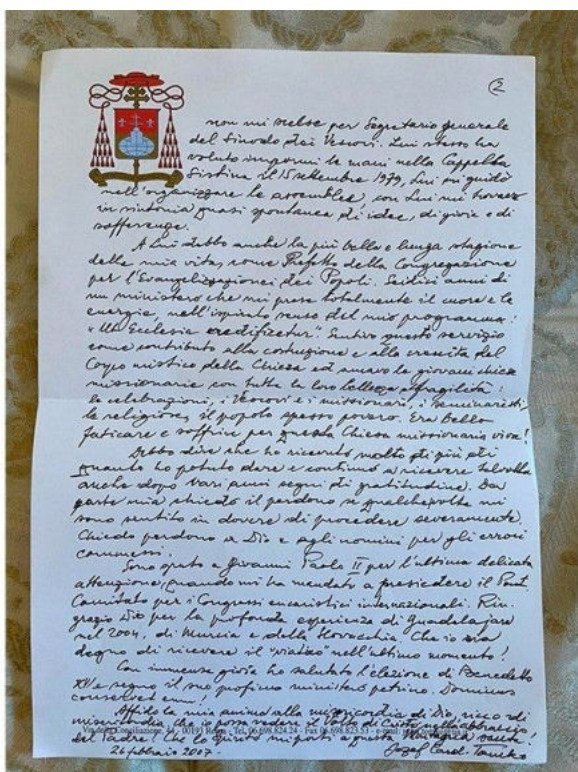 2
non mi scelse per Segretario generale
del Sinodo dei Vescovi. Lui stesso ha
voluto impormi le mani nella Cappella
Sistina il 15 settembre 1979, Lui mi guidò
nell'organizzare le assemblee, con Lui mi trovavo
in sintonia quasi spontanea di idee, di gioia e di
sofferenze.
A Lui debbo anche la più bella e lunga stagione
della mia vita, come Prefetto della Congregazione
per l'Evangelizzazione dei Popoli. Sedici anni di
un ministero che mi prese totalmente il cuore e le
energie, nell'ispirato senso del mio programma:
"Ut Ecclesia aedificetur". Sentivo questo servizio
come contributo alla costruzione e alla crescita del
Corpo mistico della Chiesa ed amavo le giovani chiese
missionarie con tutta la loro bellezza e fragilità:
le celebrazioni, i Vescovi e i missionari, i seminaristi,
le religiose, il popolo spesso povero. Era bello
faticare e soffrire per questa Chiesa missionaria viva!
Debbo dire che ho ricevuto molto di più di
quanto ho potuto dare e continuo a ricevere talvolta
anche dopo vari anni segni di gratitudine. Da
parte mia chiedo il perdono se qualche volte mi
sono sentito in dovere di procedere severamente.
Chiedo perdono a Dio e agli uomini per gli errori
commessi.
Sono grato a Giovanni Paolo II per l'ultima delicata
attenzione, quando mi ha mandato a presiedere il Pont.
Comitato per i Congressi eucaristici internazionali. Rin-
grazio Dio per la profonda esperienza di Guadalajara
nel 2004, di Murcia e della Slovacchia. Che io sia
degno di ricevere il "viatico" nell'ultimo momento!
Con immensa gioia ho salutato l'elezione di Benedetto
XVI e seguo il suo proficuo ministero petrino. Dominus
conservet eum!
Affido la mia anima alla misericordia di Dio, ricco di
misericordia, che io possa vedere il Volto di Cristo nell'abbraccio
Via della Conciliazione, 44 - 00193 Roma - Tel. 06.698.824.24 - Fax 06.698.823.53 - e-mail:
del Padre! Che lo Spirito mi porti a questa Montagna santa!
26 febbraio 2007. Jozef Card. Tomko